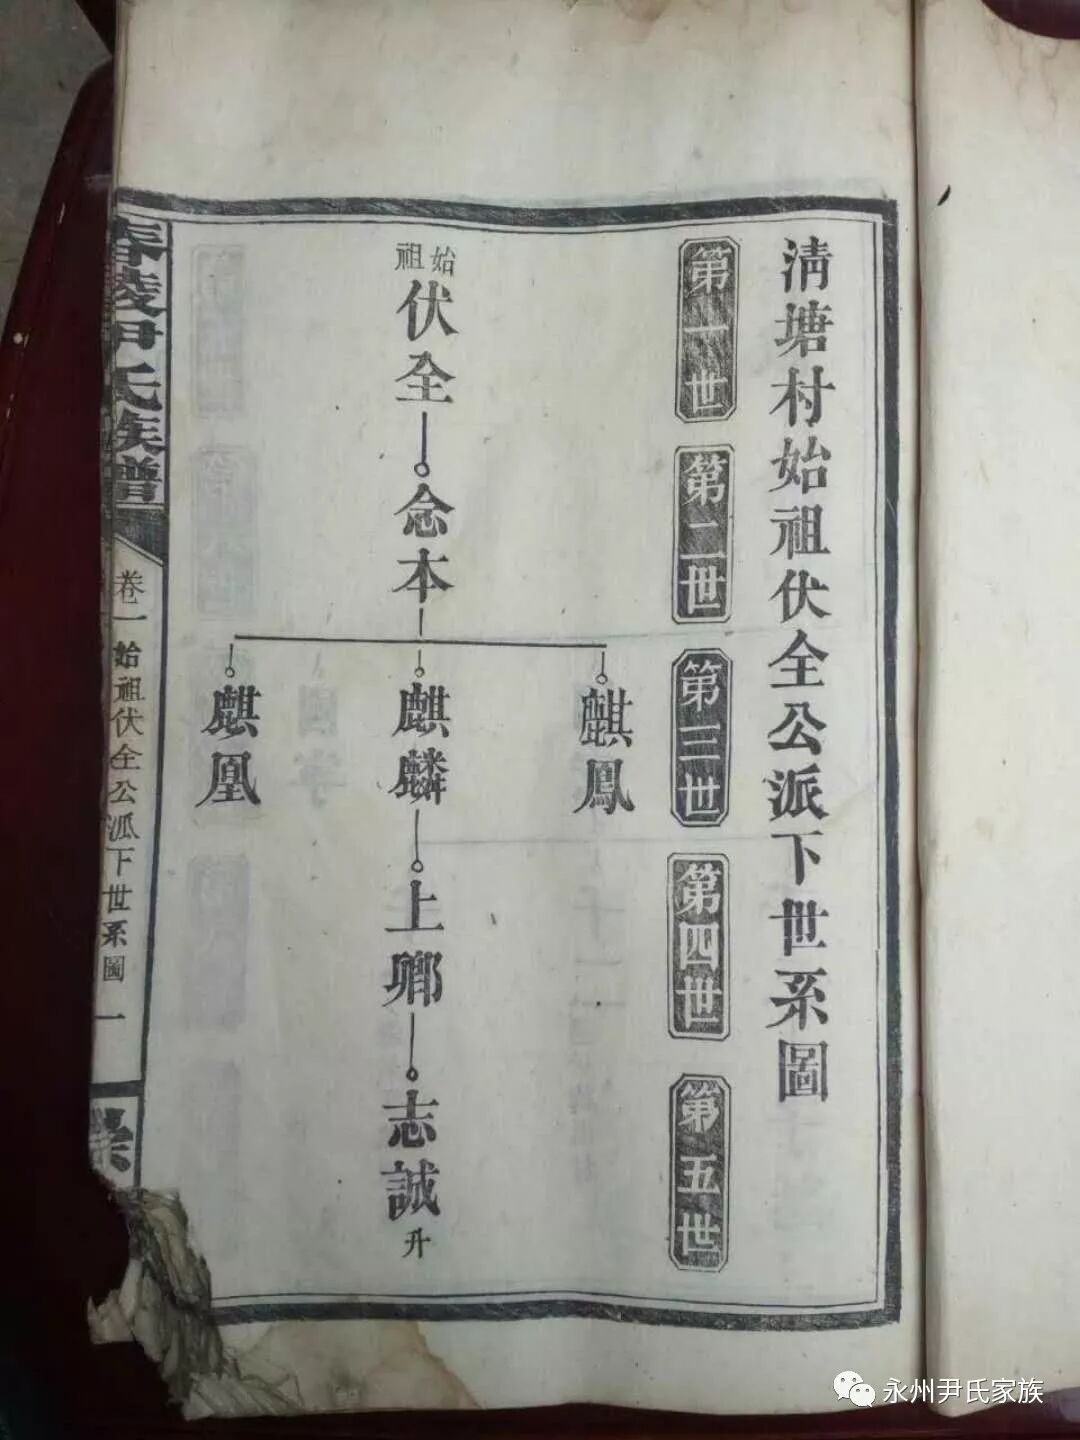 清塘村始祖伏全公派下世系圖
第一世
第二世
第三世
第四世
第五世
麒鳳
始祖
伏全
念本
麒麟
上鄉
志誠
升
麒凰
舂陵尹氏族譜
卷一
始祖伏全公派下世系圖
一
永州尹氏家族